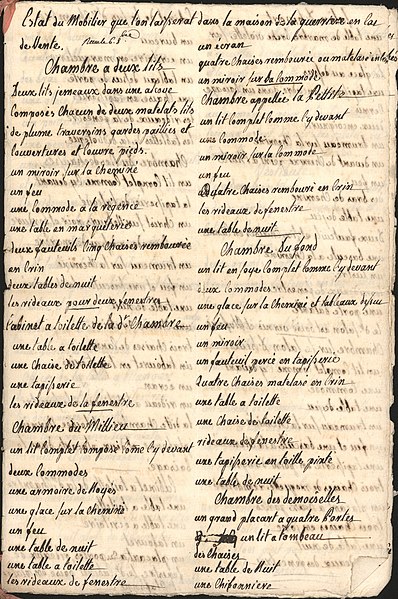 Estat du Mobilier que l'on laisserat dans la maison de la guerriere en Cas
de Vente.
Chambre a deux lits
Deux lits jemeaux dans une alcove
Composés Chacun de deux matelats lits
de plume traversins gardes paillies et
Couvertures et Couvre pieds.
un miroir sur la Cheminé
un feu
une Commode a la régence
une table en marqueterie
deux fauteuils Cinq Chaises rembourée
en Crin
deux tables de nuit
les rideaux pour deux fenestres
Cabinet a toilette de la de Chambre
une table a toilette
une Chaise de toilette
une tapisserie
les rideaux de la fenestre
Chambre du Millieu
un lit Complet Composé Come Cy devant
deux Commodes
une armoire de Noyer
une glace sur la Cheminé
un feu
une table de nuit
une table a toilette
les rideaux de fenestre
un ecran
quatre Chaises rembourée ou matelasé en
un miroir sur la Commode
Chambre appellée la
un lit Complet Comme Cy devant
une Commode
un miroir sur la Commode
un feu
Quatre Chaises rembouré en Crin
les rideaux de fenestre
une table de nuit
Chambre du fond
un lit en soye Complet Comme Cy devant
deux Commodes
une glace sur la Cheminée et tableaux
un feu
un miroir
un fauteuil percé en tapisserie
Quatre Chaises matelasé en Crin
une table a toilette
une Chaise de toilette
rideaux de fenestre
une tapisserie en toille pinte
une table de nuit
Chambre des demoiselles
un grand placart a quatre Portes
un lit a tombeau
des Chaises
une table de Nuit
une Chifonniere